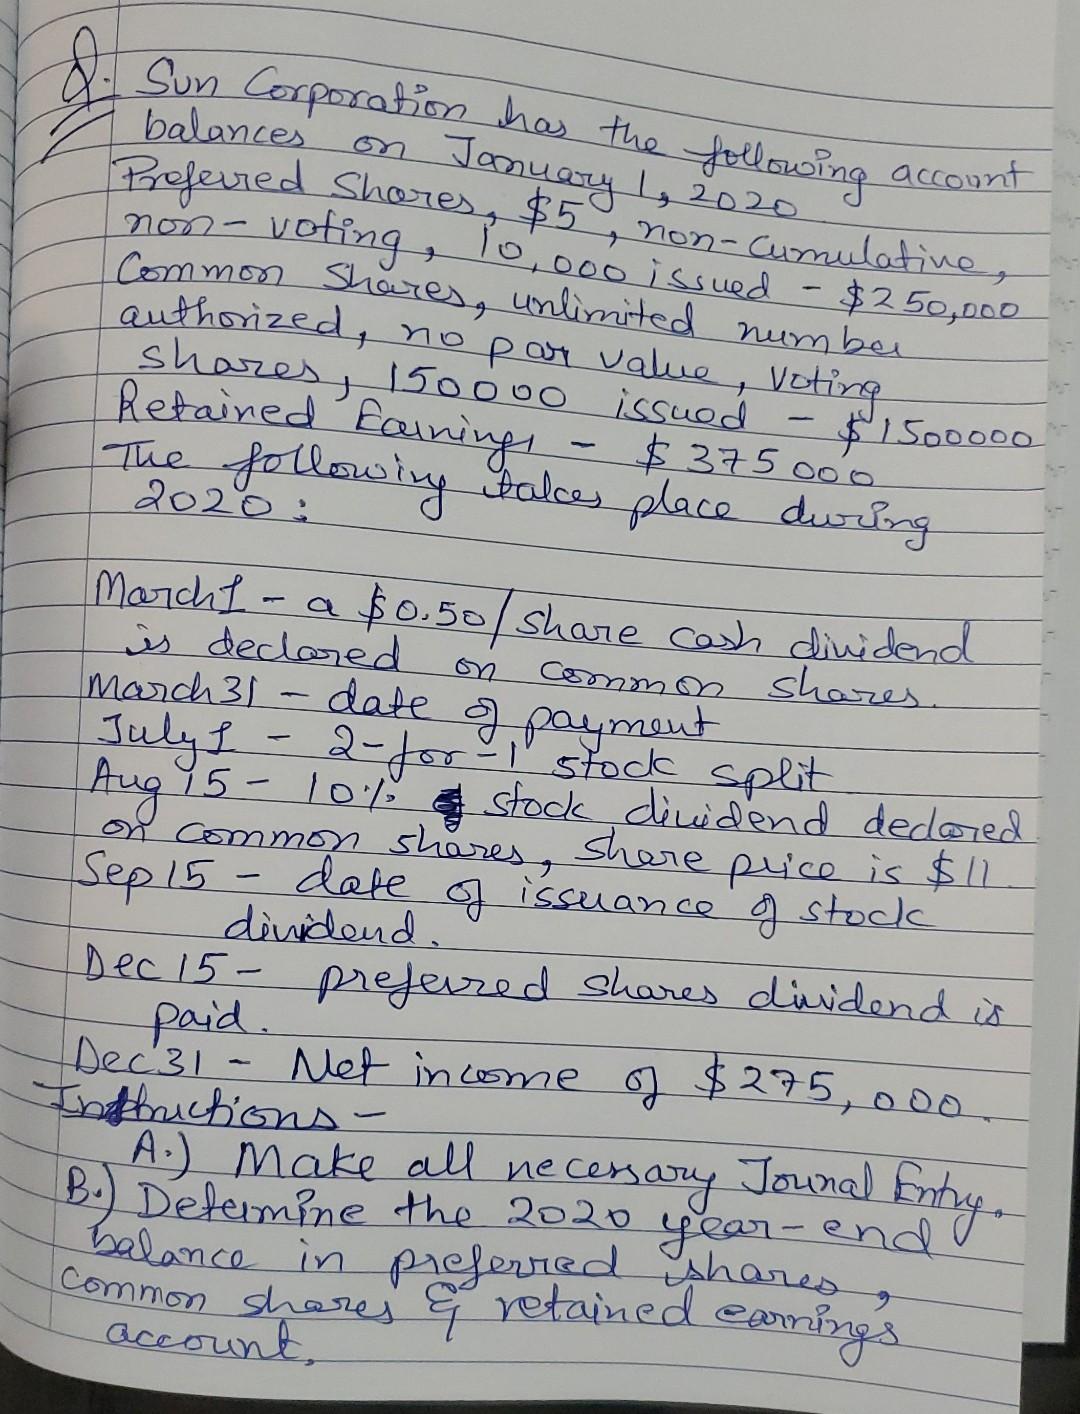 Q. Sun Corporation has the following account
balances on January 1, 2020
Preferred Shares, $5, non-cumulative,
non-voting, 10,000 issued - $250,000
Common Shares, unlimited number
authorized, no par value, voting
shares, 150000 issued - $1500000
Retained Earnings - $375000
The following takes place during
2020:
March 1 - a $0.50/share cash dividend
is declared on common shares.
March 31 - date of payment
July 1 - 2-for-1 stock split
Aug 15 - 10% stock dividend declared
on common shares, share price is $11.
Sep 15 - date of issuance of stock
dividend.
Dec 15 - preferred shares dividend is
paid.
Dec 31 - Net income of $275,000.
Instructions -
A.) Make all necessary Jounal Entry.
B.) Determine the 2020 year-end
balance in preferred shares,
common shares & retained earnings
account.